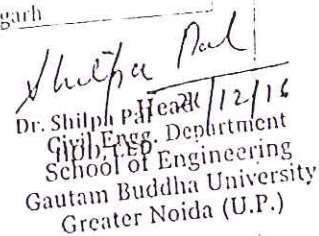 garh
Shilpa Pal
Dr. Shilpa Pal Head /12/16
Civil Engg. Department
HOD, CED
School of Engineering
Gautam Buddha University
Greater Noida (U.P.)